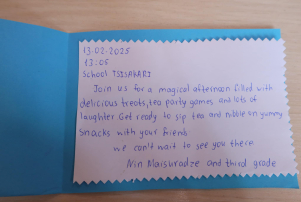 13.02.2025
13:05
School TSISKARI
Join us for a magical afternoon filled with
delicious treats, tea party games and lots of
laughter Get ready to sip tea and nibble on yummy
snacks with your friends
we can't wait to see you there
Nin Maisuradze and third grade